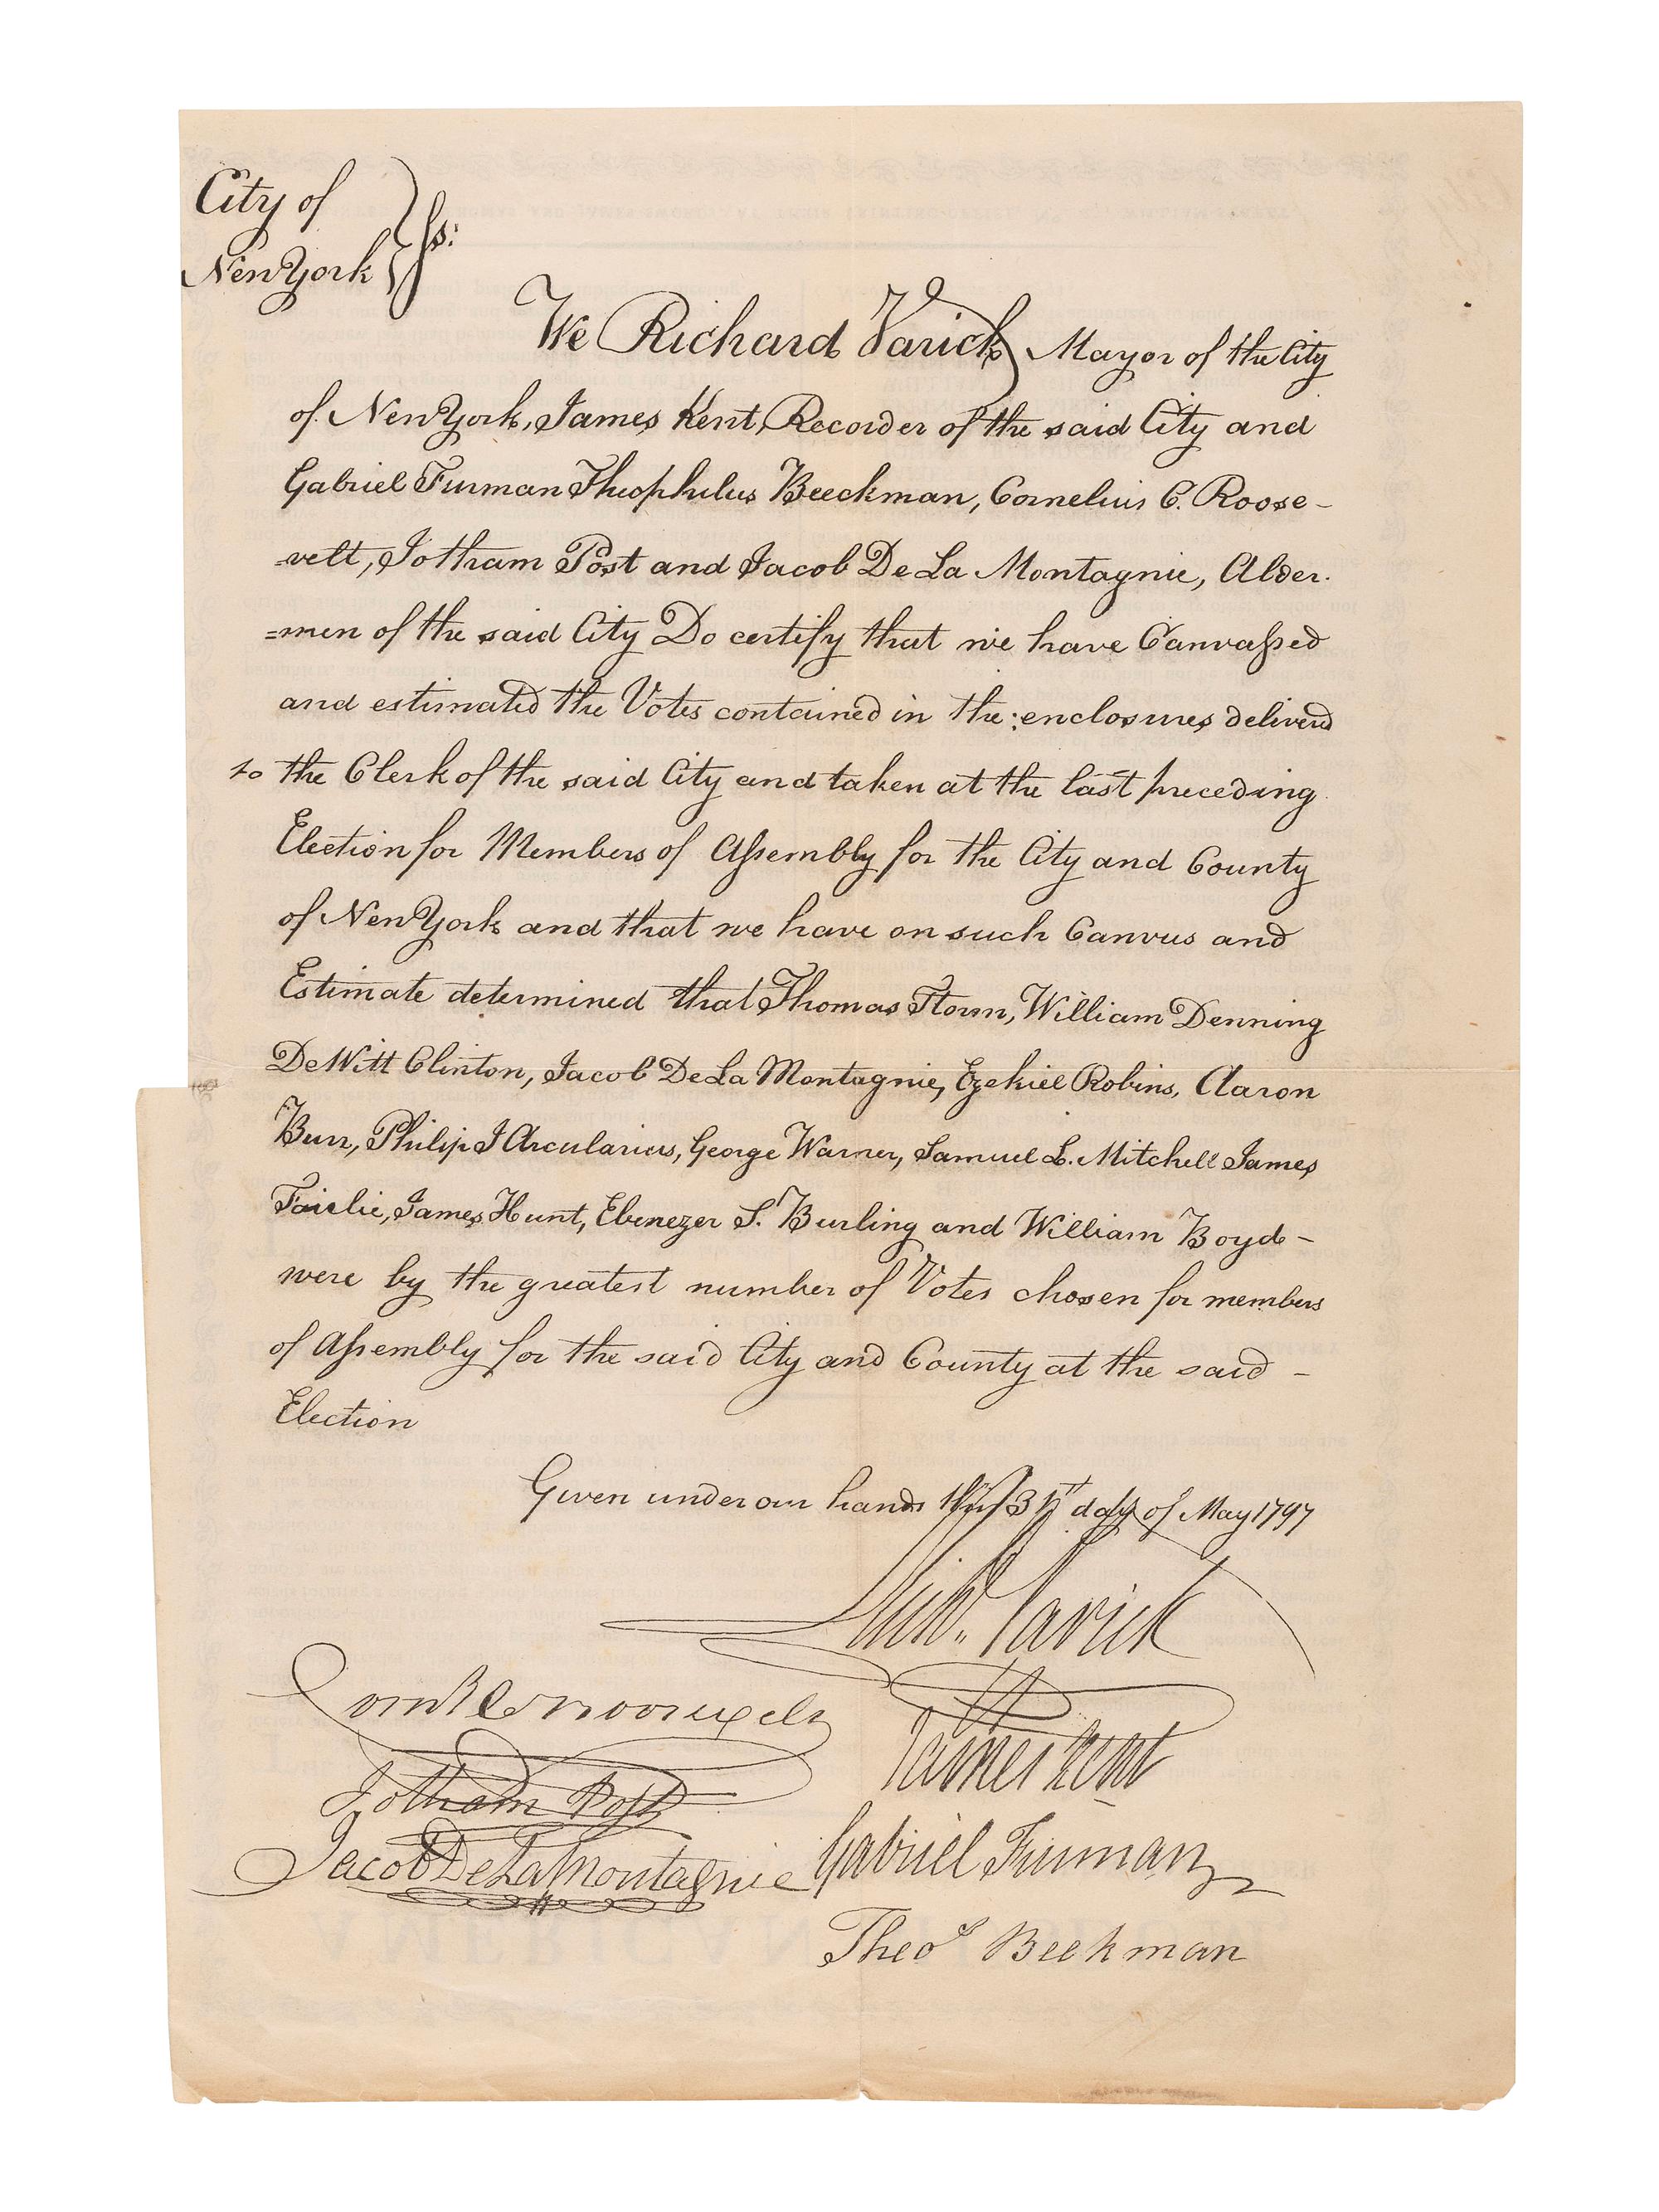 City of
New York } ss:
We Richard Varick Mayor of the City
of New York, James Kent, Recorder of the said City and
Gabriel Furman Theophulus Beeckman, Cornelius C. Roose-
-velt, Jotham Post and Jacob De La Montagnie, Alder.
=men of the said City Do certify that we have Canvaſsed
and estimated the Votes contained in the enclosures deliverd
to the Clerk of the said City and taken at the last preceding
Election for Members of Aſsembly for the City and County
of New York and that we have on such Canvus and
Estimate determined that Thomas Storm, William Denning
DeWitt Clinton, Jacob De La Montagnie, Ezekiel Robins, Aaron
Burr, Philip I Arcularius, George Warner, Samuel L. Mitchell James
Fairlie, James Hunt, Ebenezer S. Burling and William Boyd -
were by the greatest number of Votes chosen for members
of Aſsembly for the said City and County at the said -
Election
Given under our hands this 31st day of May 1797
Richd. Varick
James Kent
Gabriel Furman
Theos Beekman
Corns C Roosevelt
Jotham Post
Jacob De La Montagnie